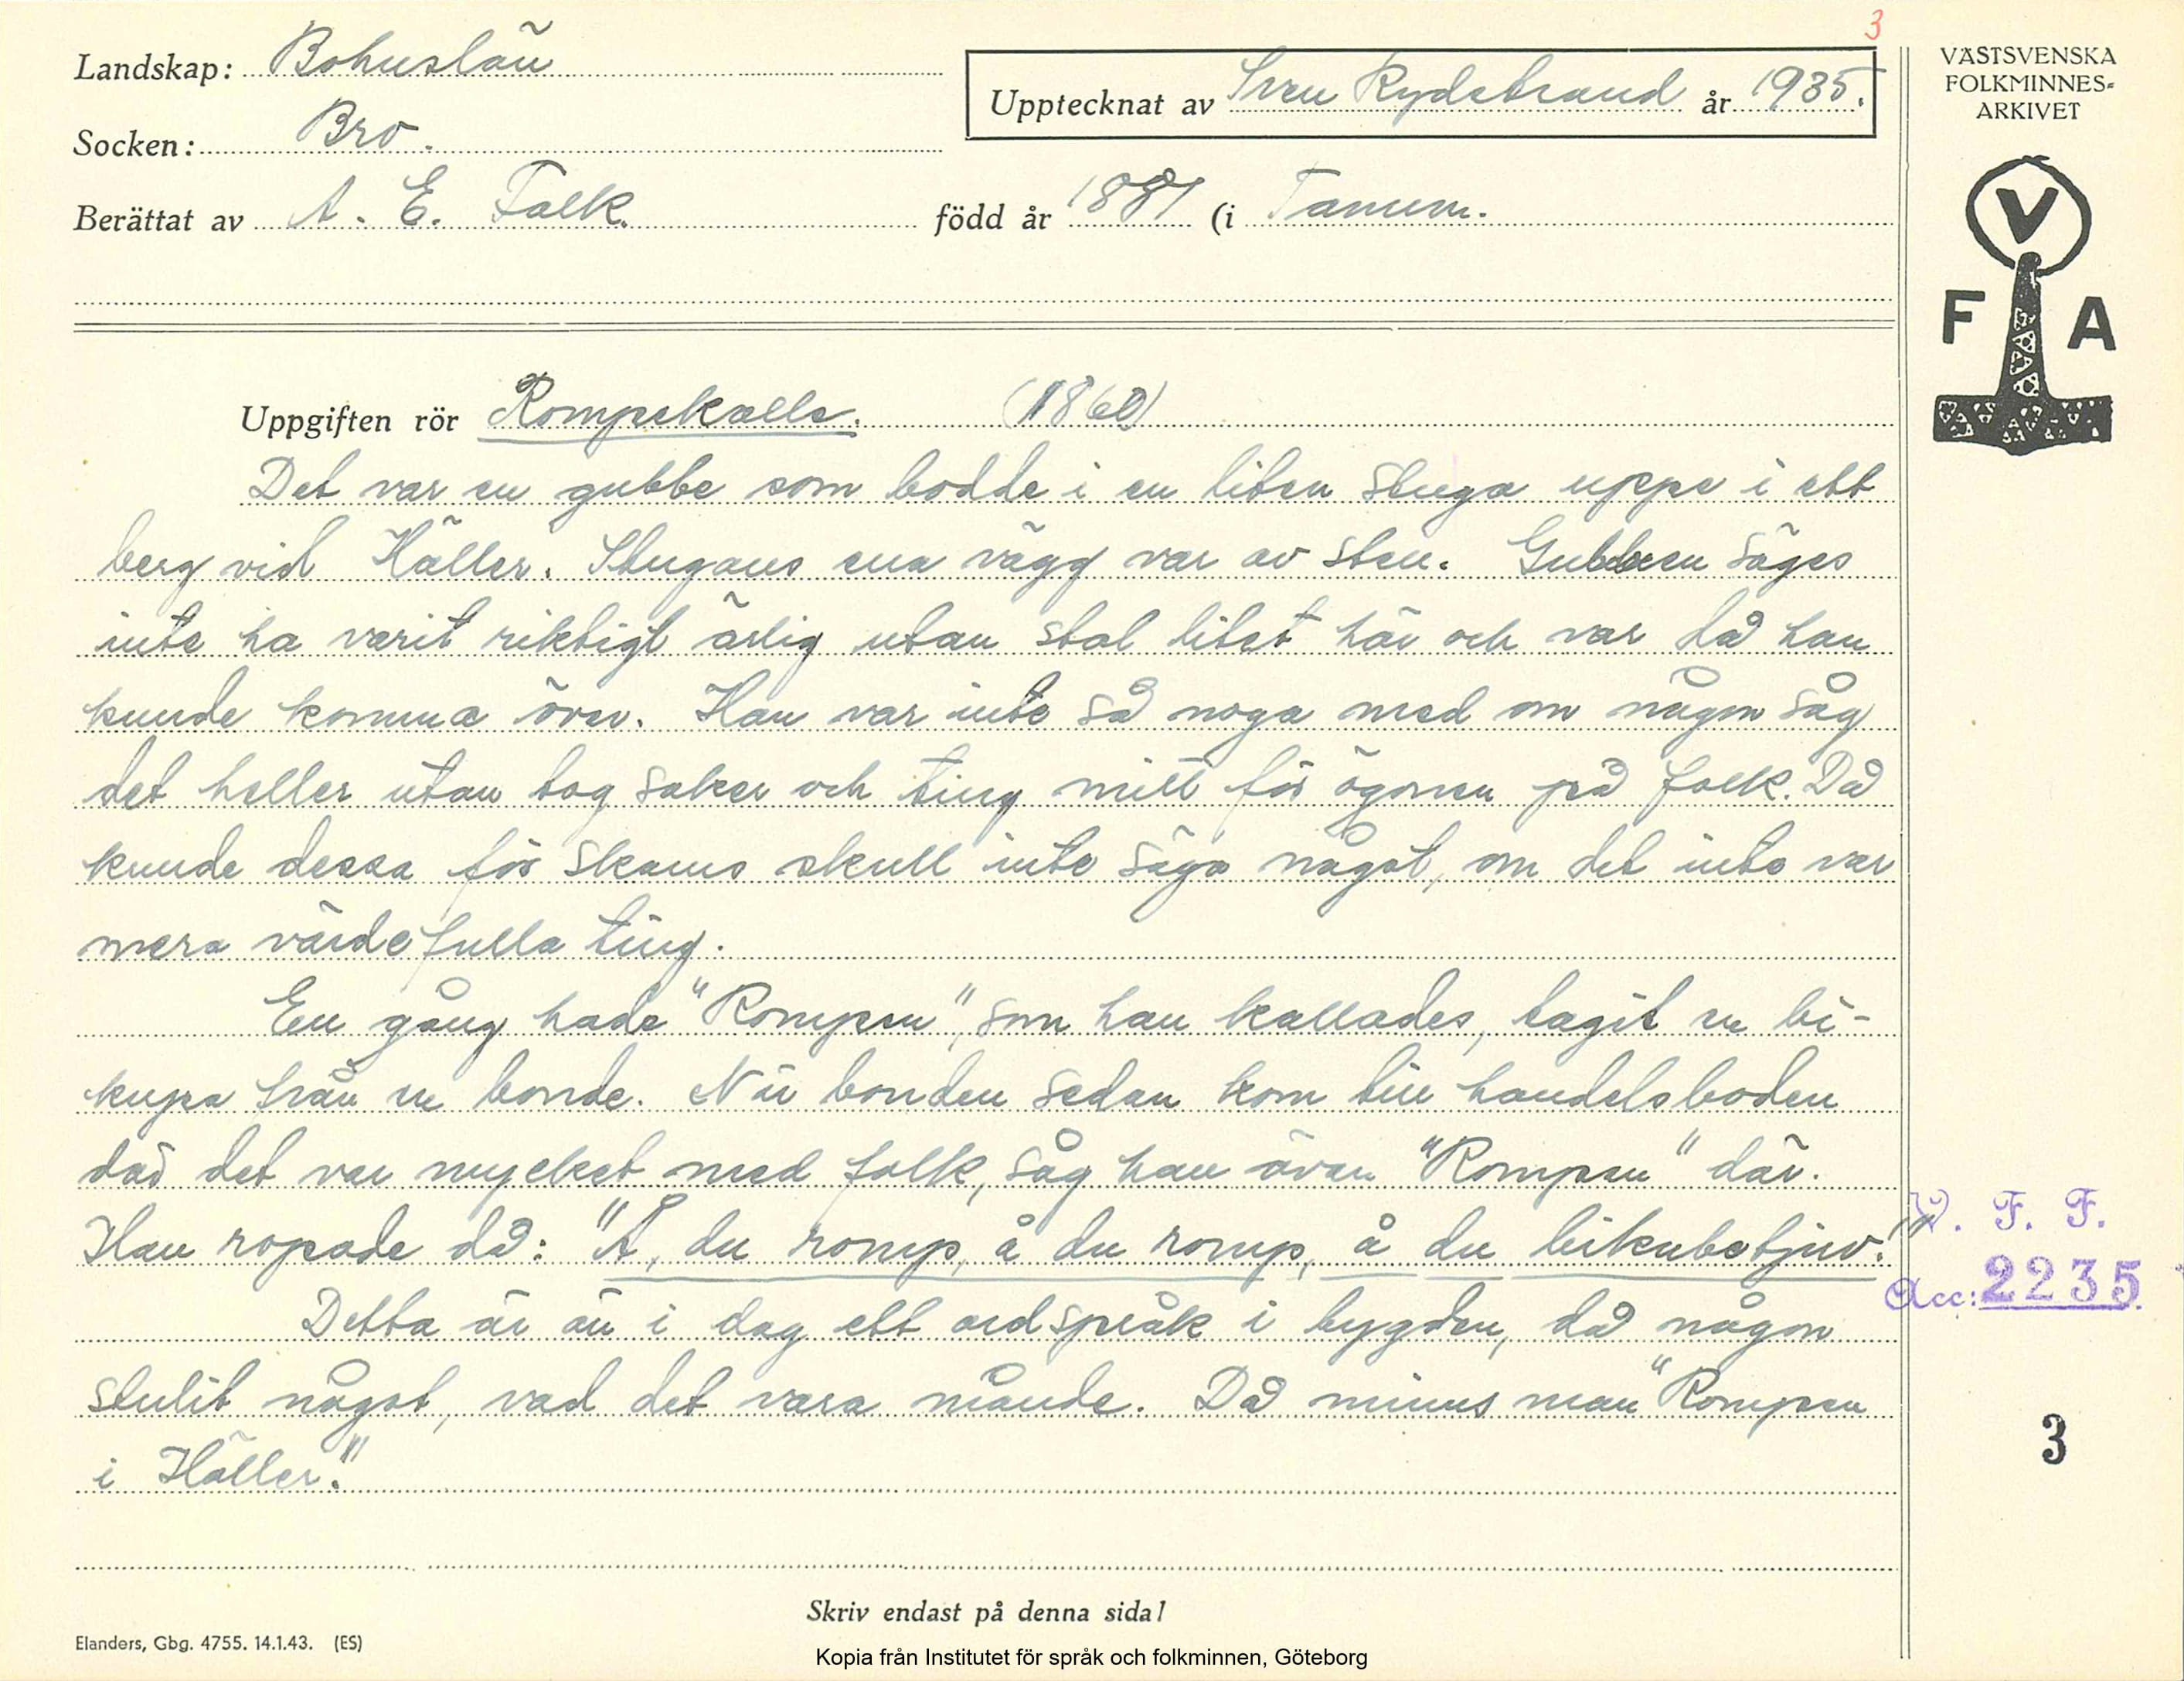 3
Landskap: Bohuslän
Upptecknat av Sven Rydstrand år 1935.
VÄSTSVENSKA
FOLKMINNES-
ARKIVET
Socken: Bro.
Berättat av A. E. Falk. född år 1881 (i Tanum.
V
F A
Uppgiften rör Rompekalle. (1860)
Det var en gubbe som bodde i en liten stuga uppe i ett
berg vid Häller. Stugans ena vägg var av sten. Gubben säges
inte ha varit riktigt ärlig utan stal litet här och var då han
kunde komma över. Han var inte så noga med om någon såg
det heller utan tog saker och ting mitt för ögonen på folk. Då
kunde dessa för skams skull inte säga något, om det inte var
mera värdefulla ting.
En gång hade "Rompen", som han kallades, tagit en bi-
kupa från en bonde. När bonden sedan kom till handelsboden
där det var mycket med folk, såg han även "Rompen" där.
Han ropade då: "Å, du romp, å du romp, å du bikubetjuv."
V. F. F.
Acc: 2235
Detta är än i dag ett ordspråk i bygden, då någon
stulit något, vad det vara månde. Då minns man "Rompen
i Häller."
3
Skriv endast på denna sida!
Elanders, Gbg. 4755. 14.1.43. (ES)
Kopia från Institutet för språk och folkminnen, Göteborg